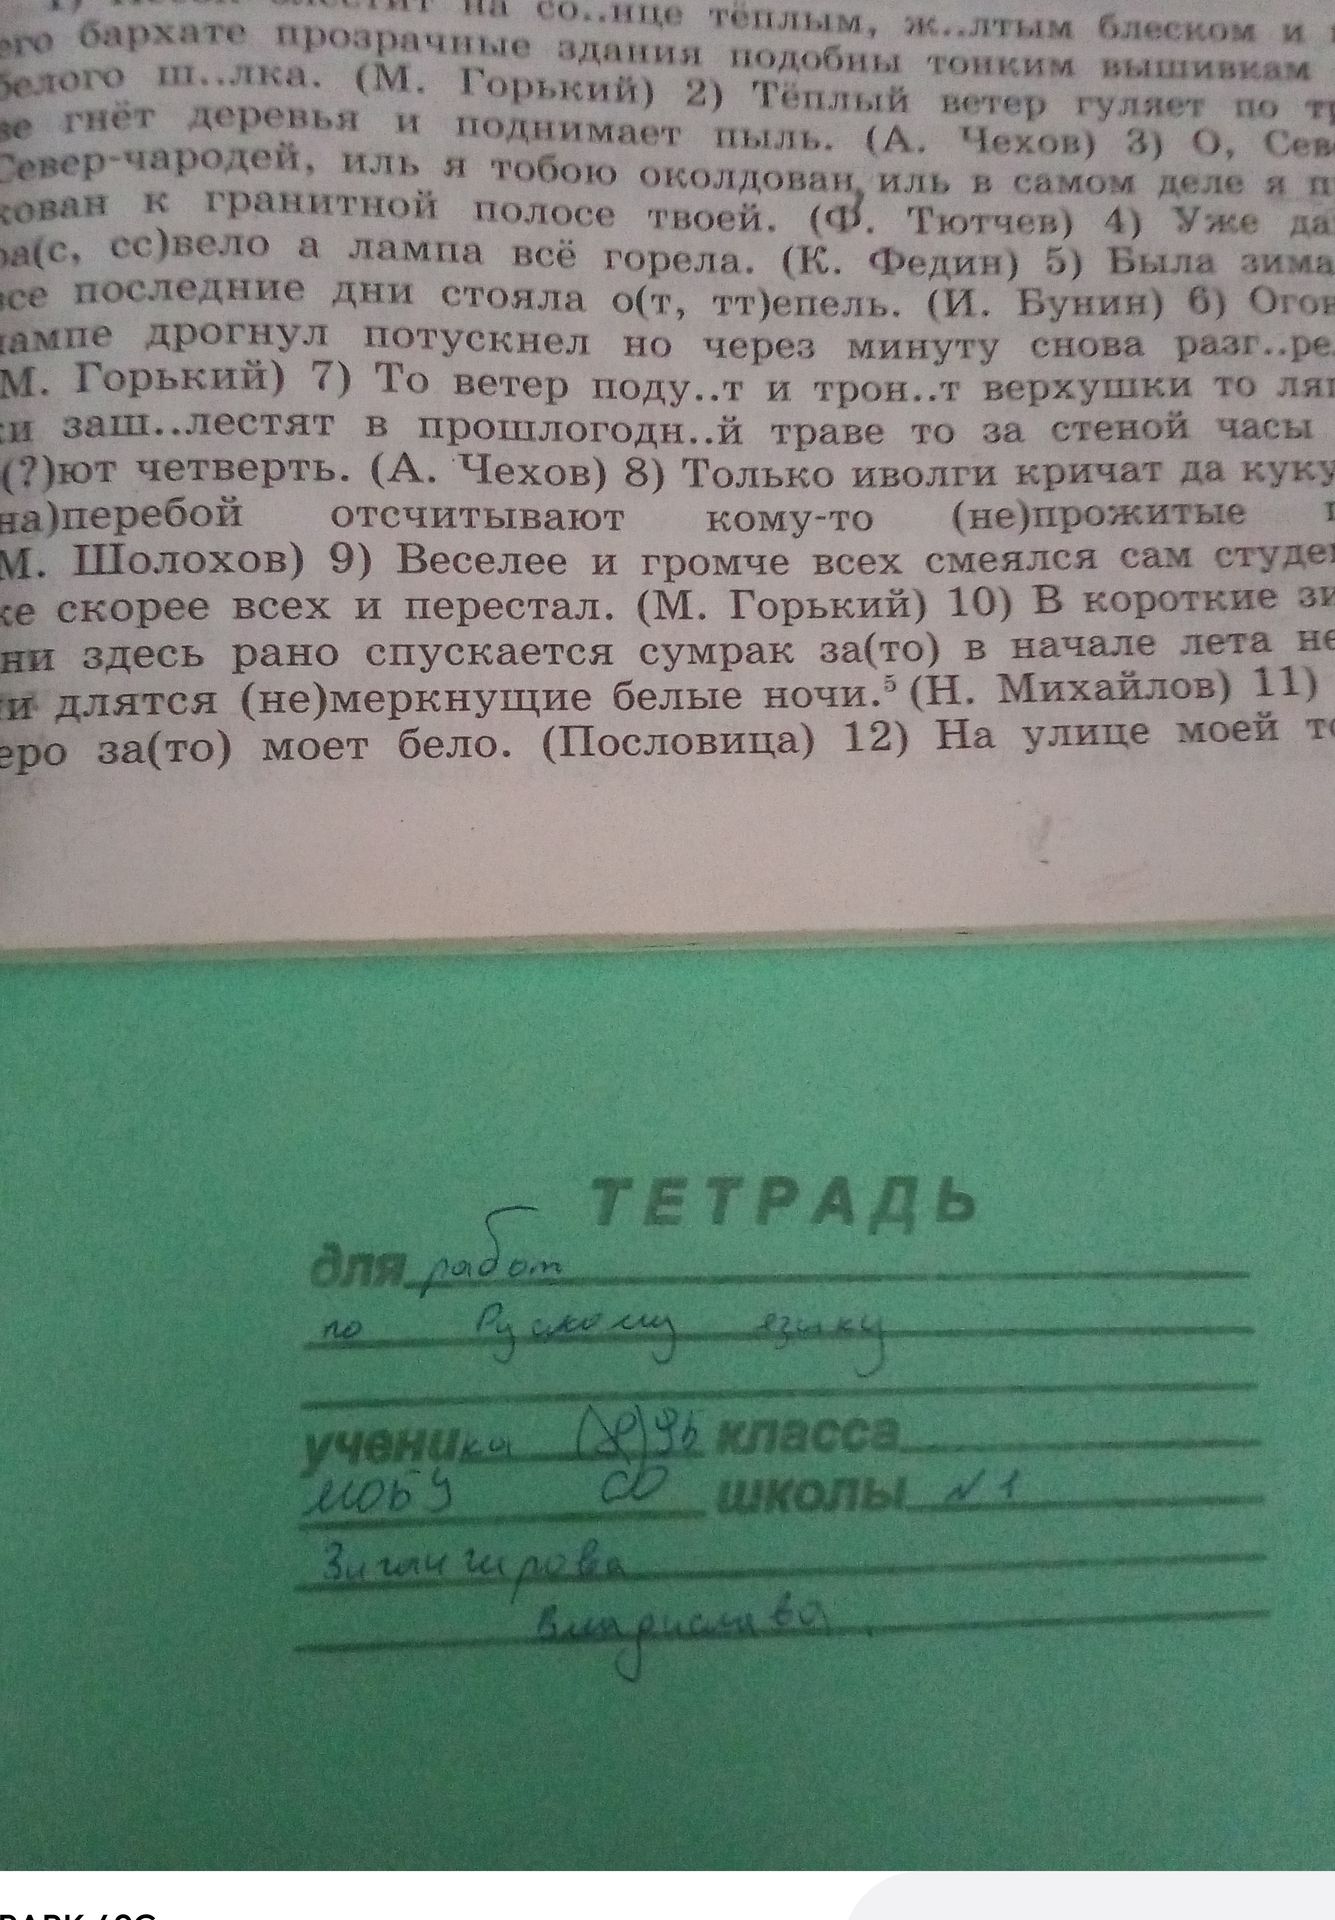 на со..нце тёплым, ж..лтым блеском и
его бархате прозрачные здания подобны тонким вышивкам
белого ш..лка. (М. Горький) 2) Тёплый ветер гуляет по тр
ве гнёт деревья и поднимает пыль. (А. Чехов) 3) О, Сев
Север-чародей, иль я тобою околдован, иль в самом деле я п
кован к гранитной полосе твоей. (Ф. Тютчев) 4) Уже да
ра(с, сс)вело а лампа всё горела. (К. Федин) 5) Была зима
все последние дни стояла о(т, тт)епель. (И. Бунин) 6) Огон
лампе дрогнул потускнел но через минуту снова разг..ре
М. Горький) 7) То ветер поду..т и трон..т верхушки то ляг
ки заш..лестят в прошлогодн..й траве то за стеной часы
(?)ют четверть. (А. Чехов) 8) Только иволги кричат да куку
на)перебой отсчитывают кому-то (не)прожитые г
М. Шолохов) 9) Веселее и громче всех смеялся сам студен
же скорее всех и перестал. (М. Горький) 10) В короткие зи
ни здесь рано спускается сумрак за(то) в начале лета не
и длятся (не)меркнущие белые ночи.⁵ (Н. Михайлов) 11)
еро за(то) моет бело. (Пословица) 12) На улице моей то
ТЕТРАДЬ
для работ
по Рускому языку
ученика 9б класса
МОБУ СО школы №1
Зигангирова
Владислава.